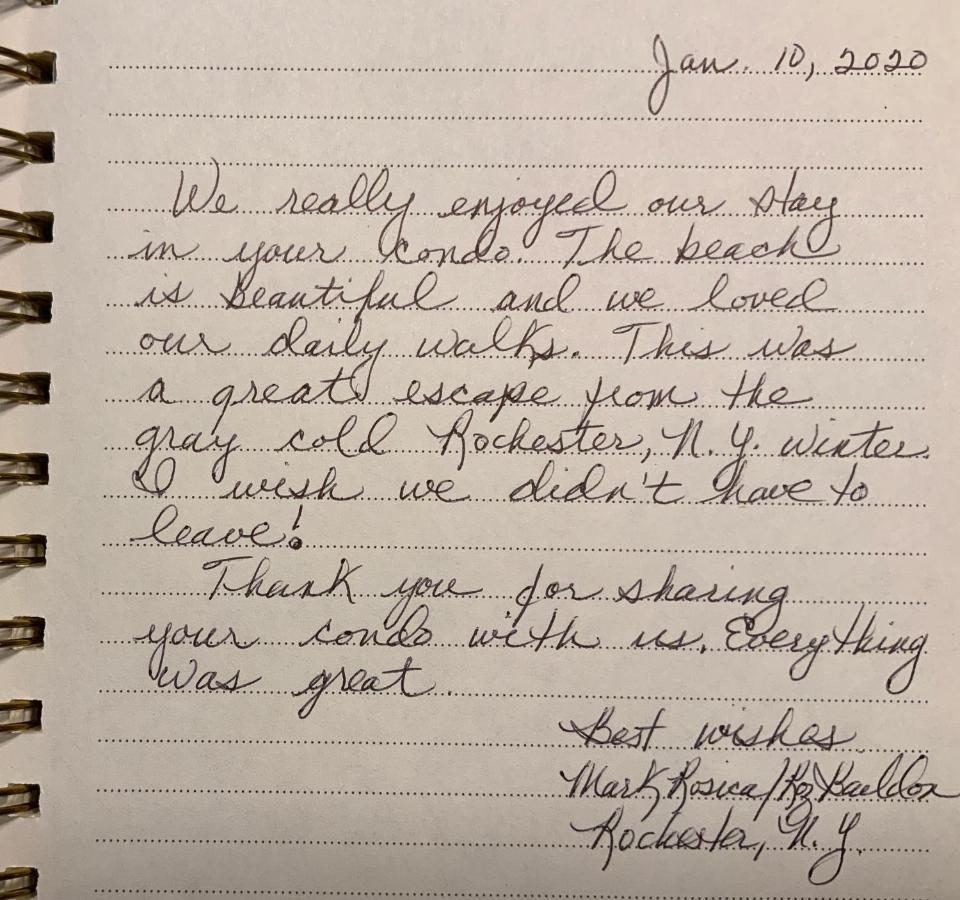 Jan. 10, 2020
We really enjoyed our stay
in your condo. The beach
is beautiful and we loved
our daily walks. This was
a great escape from the
gray cold Rochester, N.Y. winter.
I wish we didn't have to
leave!
Thank you for sharing
your condo with us. Everything
was great.
Best wishes
Mark Rosica/
Rochester, N.Y.